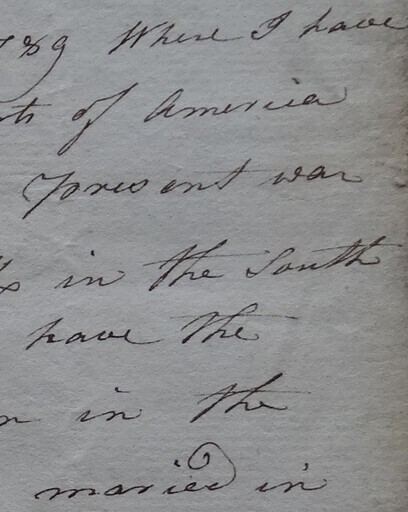 789 Where I have
of America
present war
in the South
have the
in the
maried in